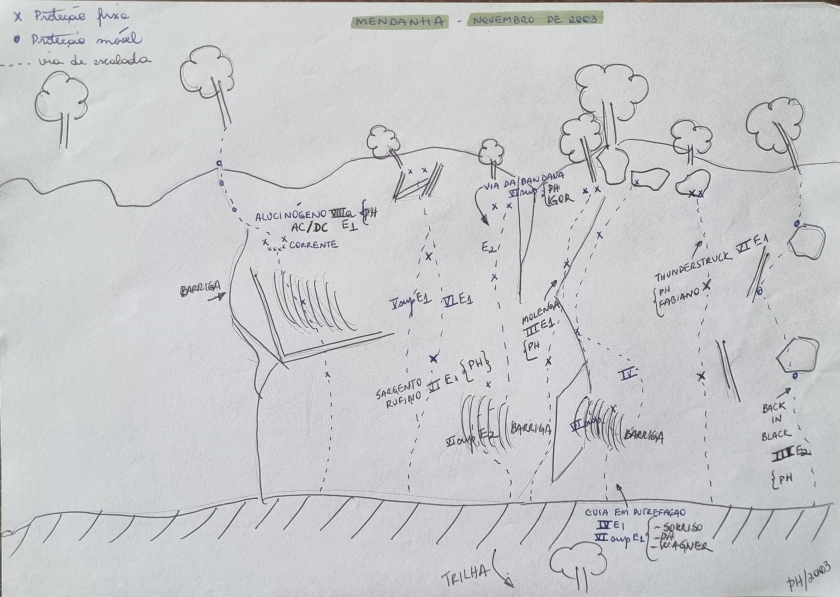 x Proteção fixa
• Proteção móvel
.... via de escalada
MENDANHA - NOVEMBRO DE 2003
ALUCINÓGENO VIIa { PH
AC/DC E1
CORRENTE
BARRIGA
VIA DA BANDANA
VI sup { PH
IGOR
E2
V sup E1
VI E1
MOLENGA
III E1
{ PH
THUNDERSTRUCK VI E1
{ PH
FABIANO
SARGENTO
RUFINO VI E1 { PH }
IV
VI sup E2
BARRIGA
VI sup
BARRIGA
BACK
IN
BLACK
III E2
{ PH
GUIA EM PUTREFAÇÃO
IV E1
VI sup E1
{ - SORRISO
- PH
- WAGNER
TRILHA
PH/2003